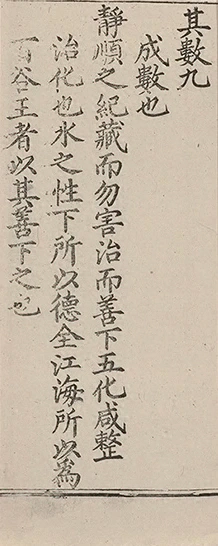 其數九
成數也
靜順之紀藏而勿害治而善下五化咸整
治化也水之性下所以德全江海所以為
百谷王者以其善下之也